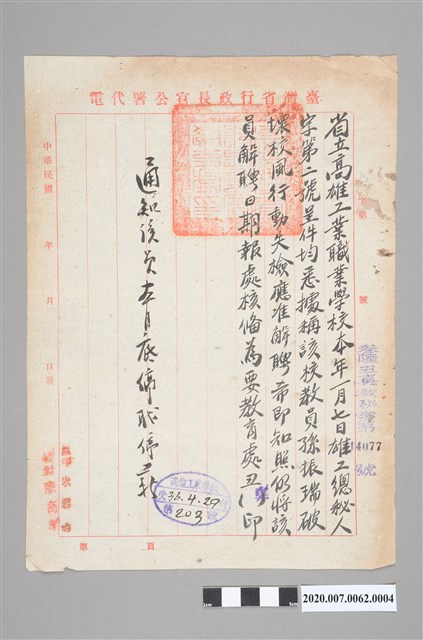 臺灣省行政長官公署代電
字第
號
省立高雄工業職業學校本年一月七日雄工總秘人
字第二號呈件均悉據稱該校教員孫振瑞破
壞校風行動失檢應准解聘希即知照仍將該
員解聘日期報處核備為要教育處丑(  )印
14077
號
通知該員本月底停職停薪
中華民國 年 月 日發
36.4.29
203
第 頁
1cm
5cm
2020.007.0062.0004